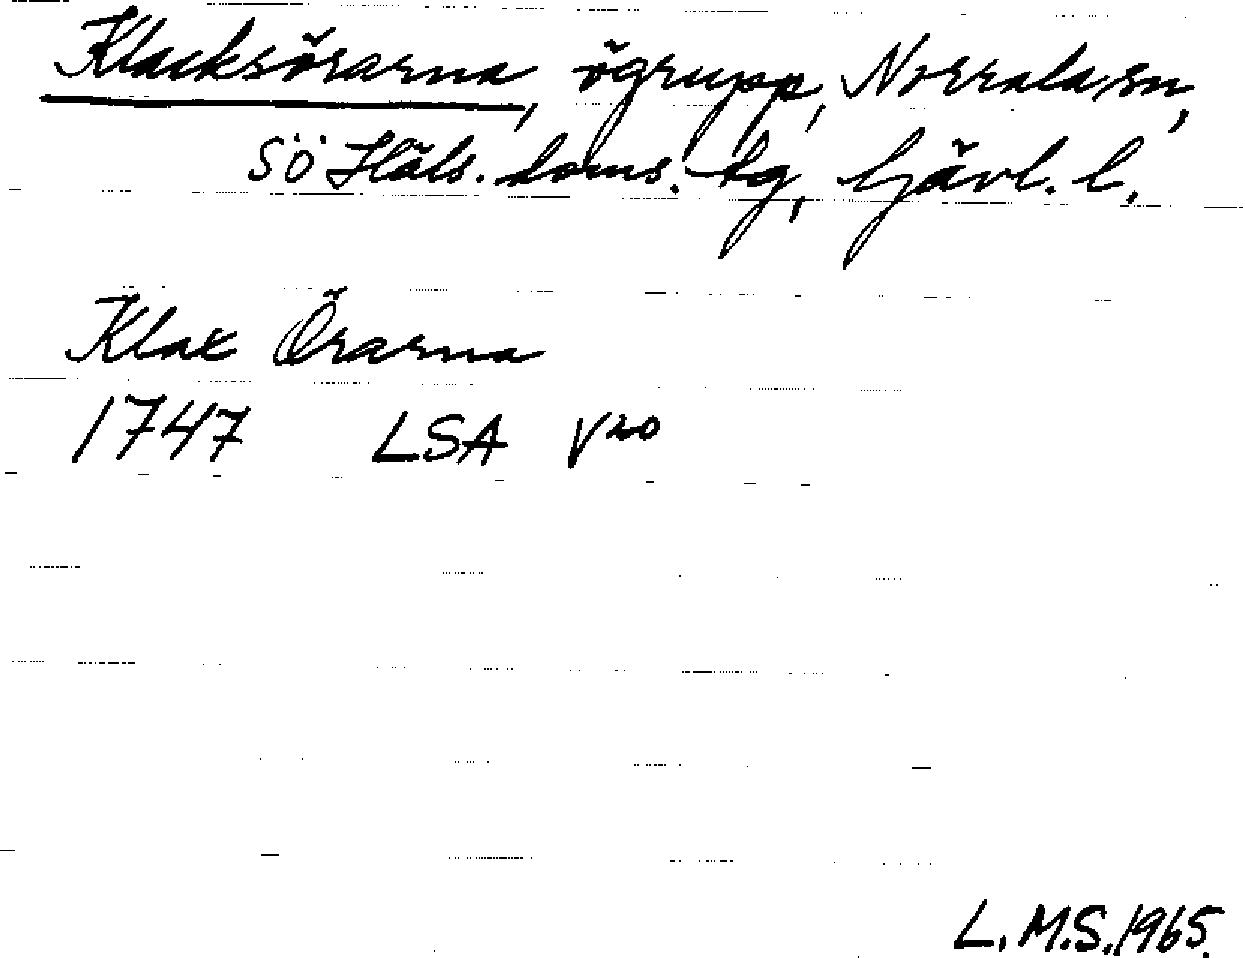 Klacksörarna, ögrupp, Norrala sn,
SÖ Häls. doms. tg, Gävl. l.
Klax Örarna
1747 LSA V20
L.M.S. 1965.